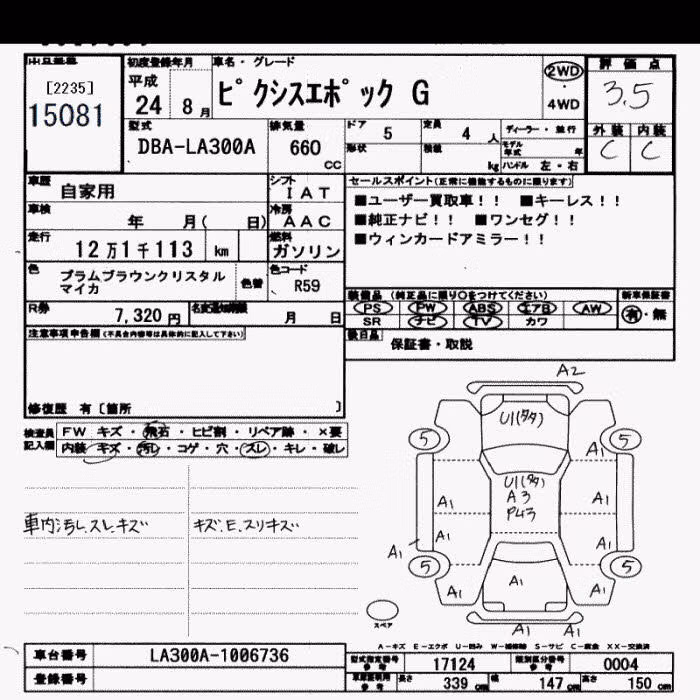 出品番号
[2235]
15081
初度登録年月
平成
24 8 月
車名・グレード
ピクシスエポック G
2WD
・
4WD
評価点
3.5
外装 内装
C C
型式
DBA-LA300A
排気量
660
CC
ドア 5
定員 4 人
形状
積載 kg
ディーラー・並行
モデル年式 年
ハンドル 左・右
車歴
自家用
シフト
IAT
車検
年 月( 日)
冷房
AAC
走行
12万1千113 km
燃料
ガソリン
色
プラムブラウンクリスタル
マイカ
色替
色コード
R59
R券
7,320 円
名変通知期限
月 日
セールスポイント(正常に機能するものに限ります)
■ユーザー買取車!! ■キーレス!!
■純正ナビ!! ■ワンセグ!!
■ウィンカードアミラー!!
装備品 (純正品に限り○をつけてください)
PS PW ABS エアB AW
SR ナビ TV カワ
新車保証書
有・無
後日品
保証書・取説
注意事項申告欄(不具合内容等は具体的に記入して下さい)
修復歴 有〔箇所 〕
検査員
記入欄
FW キズ・飛石・ヒビ割・リペア跡・×要
内装 キズ・汚れ・コゲ・穴・スレ・キレ・破レ
車内汚レ.スレ.キズ
キズ.E.スリキズ
A2
U1(タタ)
5
5
U1(タタ)
A3
P43
A1
A1
A1
A1
A1
5
5
A1
A1
A1
A1
A1
スペア
A-キズ E-エクボ U-凹み W-補修跡 S-サビ C-腐食 XX-交換済
車台番号
LA300A-1006736
登録番号
型式指定番号
参考
17124
類別区分番号
参考
0004
車庫証明用
参考
長さ 339 cm
幅 147 cm
高さ 150 cm